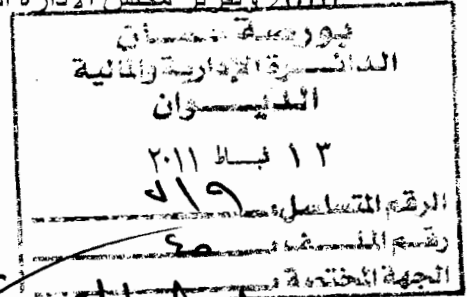 وتقرير مجلس الادارة
بورصة عمان
الدائرة الإدارية والمالية
الديوان
١٣ شباط ٢٠١١
الرقم المتسلسل
رقم الملف
الجهة المختصة